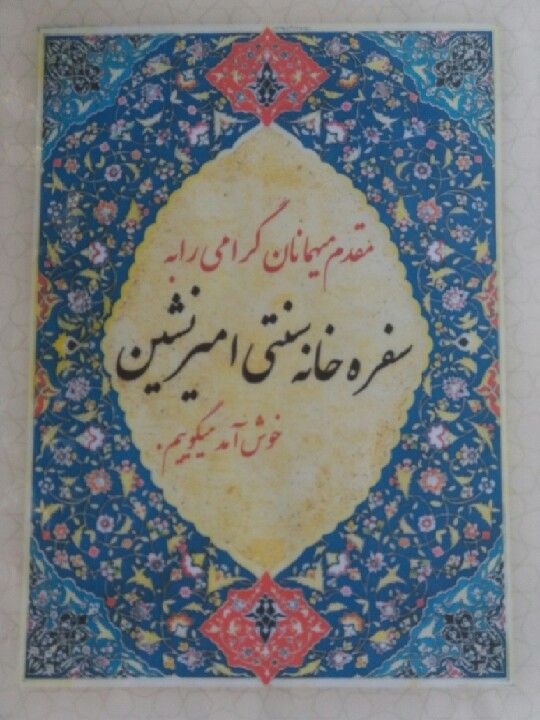 مقدم میهمانان گرامی را به
سفره خانه سنتی امیرنشین
خوش آمد میگوییم.